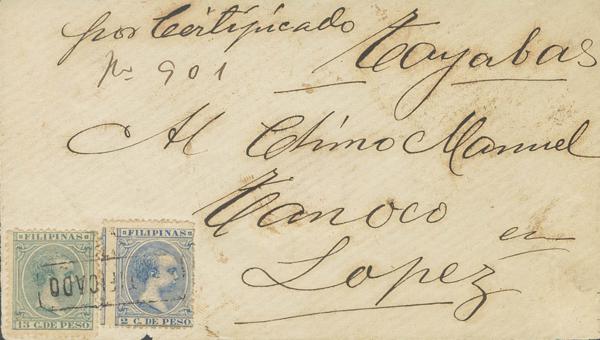 por Certificado
Tayabas
No 901
Al Chino Manuel
Tanoco en
Lopez
FILIPINAS
15 C. DE PESO
FILIPINAS
2 C. DE PESO
FICADO